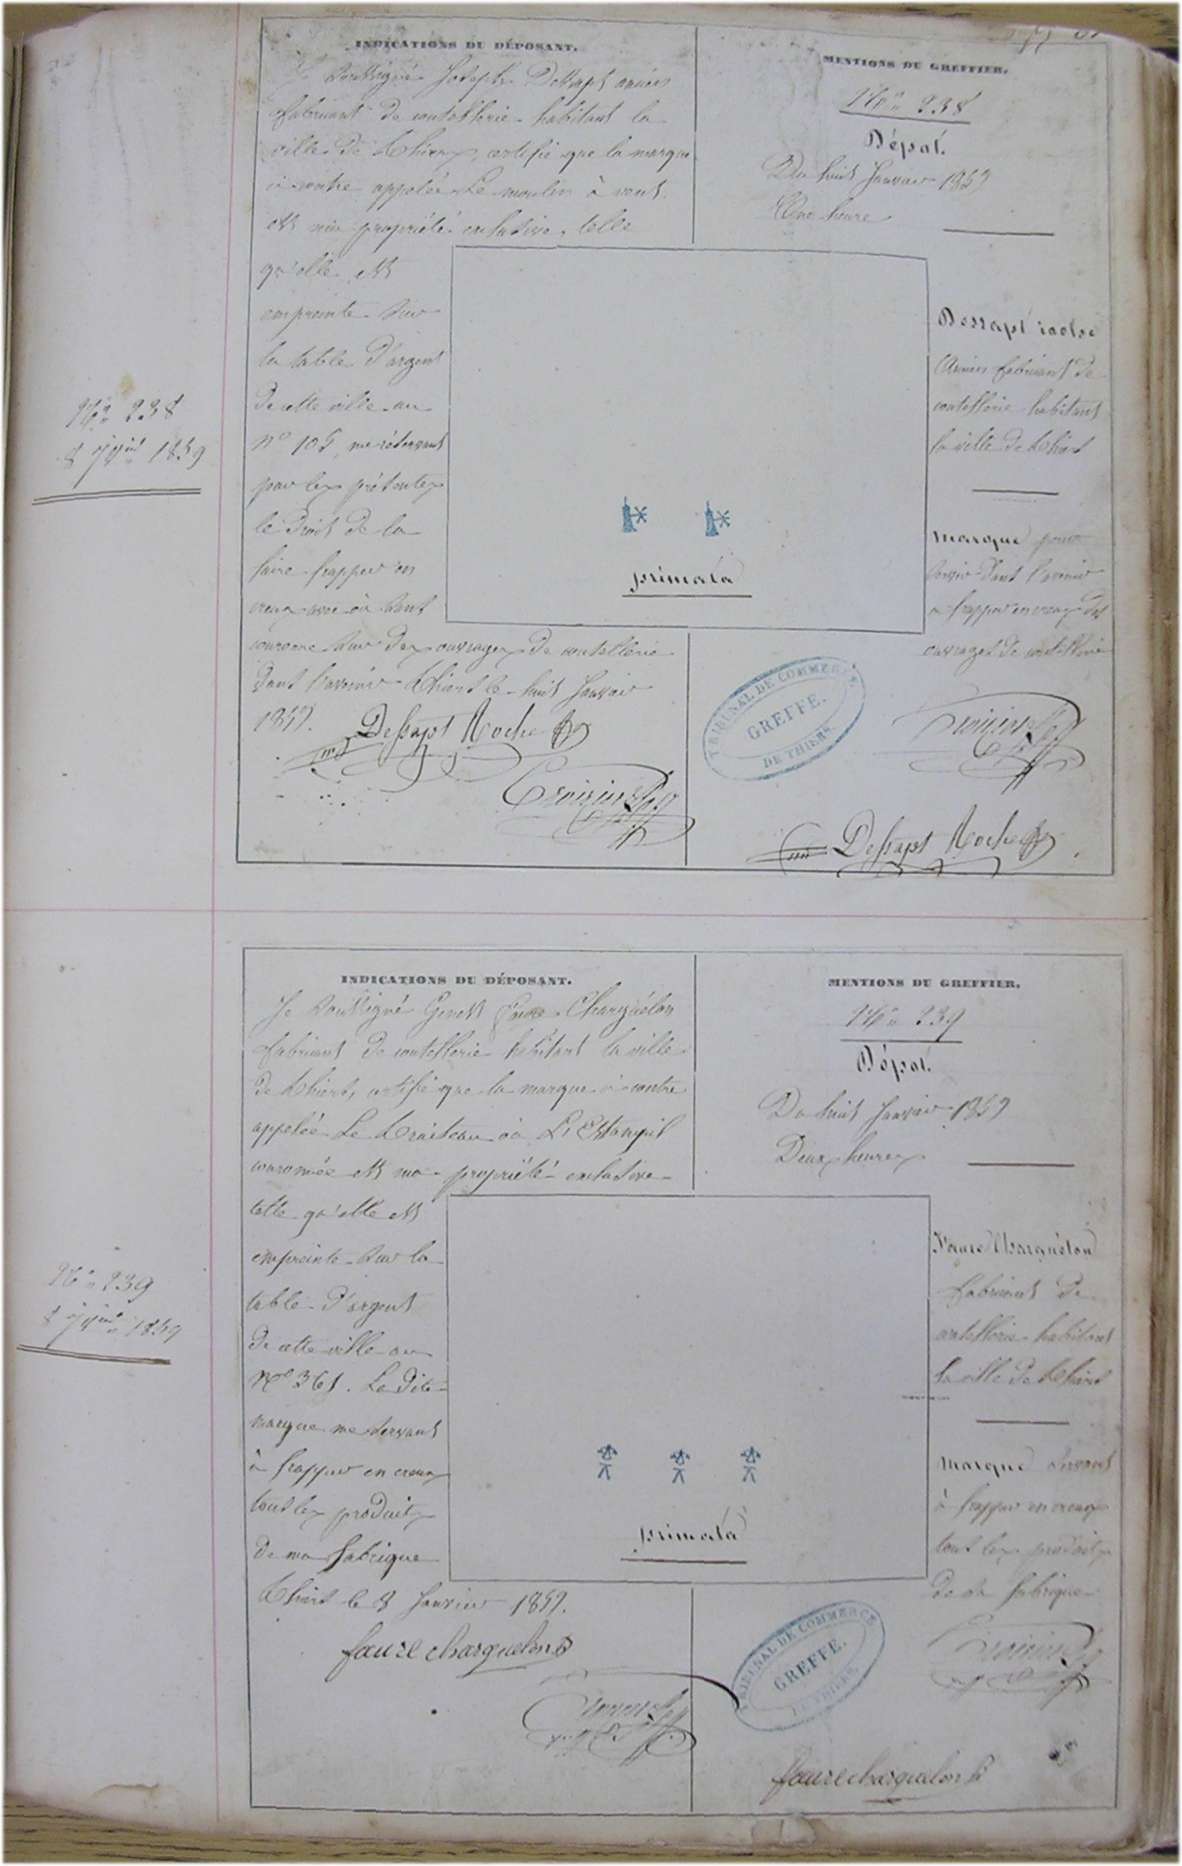 INDICATIONS DU DÉPOSANT.
Soussigné Joseph Dessapt ancien
fabricant de coutellerie habitant la
ville de Thiers, certifie que la marque
ci contre appelée Le moulin à vent
est ma propriété exclusive, telle
qu'elle est
empreinte sur
la table d'argent
de cette ville au
N° 105, me réservant
par les présentes
le droit de la
faire frapper en
creux avec ou sans
couronne sur des ouvrages de coutellerie
dont l'avenir Thiers le huit Janvier
1859.
Dessapt Roche
MENTIONS DU GREFFIER.
N° 238
Dépôt.
Du huit Janvier 1859
Une heure
Dessapt roche
Ancien fabricant de
coutellerie habitant
la ville de Thiers
marque pour
servir dans l'avenir
à frapper en creux des
ouvrages de coutellerie
primata
TRIBUNAL DE COMMERCE
GREFFE.
DE THIERS
Dessapt Roche
N° 238
8 Jier 1859
INDICATIONS DU DÉPOSANT.
Je Soussigné Genest Faure Charguélon
fabricant de coutellerie habitant la ville
de Thiers, certifie que la marque ci contre
appelée Le Traiteau où L'Estampil
couronnée est ma propriété exclusive
telle qu'elle est
empreinte sur la
table d'argent
de cette ville au
N° 361. La dite
marque me servant
à frapper en creux
tous les produits
de ma fabrique
Thiers le 8 Janvier 1859.
faure charguelon
MENTIONS DU GREFFIER.
N° 239
Dépôt.
Du huit Janvier 1859
Deux heures
Faure Charguélon
fabricant de
coutellerie habitant
la ville de Thiers
marque servant
à frapper en creux
tous les produits
de sa fabrique
primata
TRIBUNAL DE COMMERCE
GREFFE.
DE THIERS
faure charguelon
N° 239
8 Jier 1859